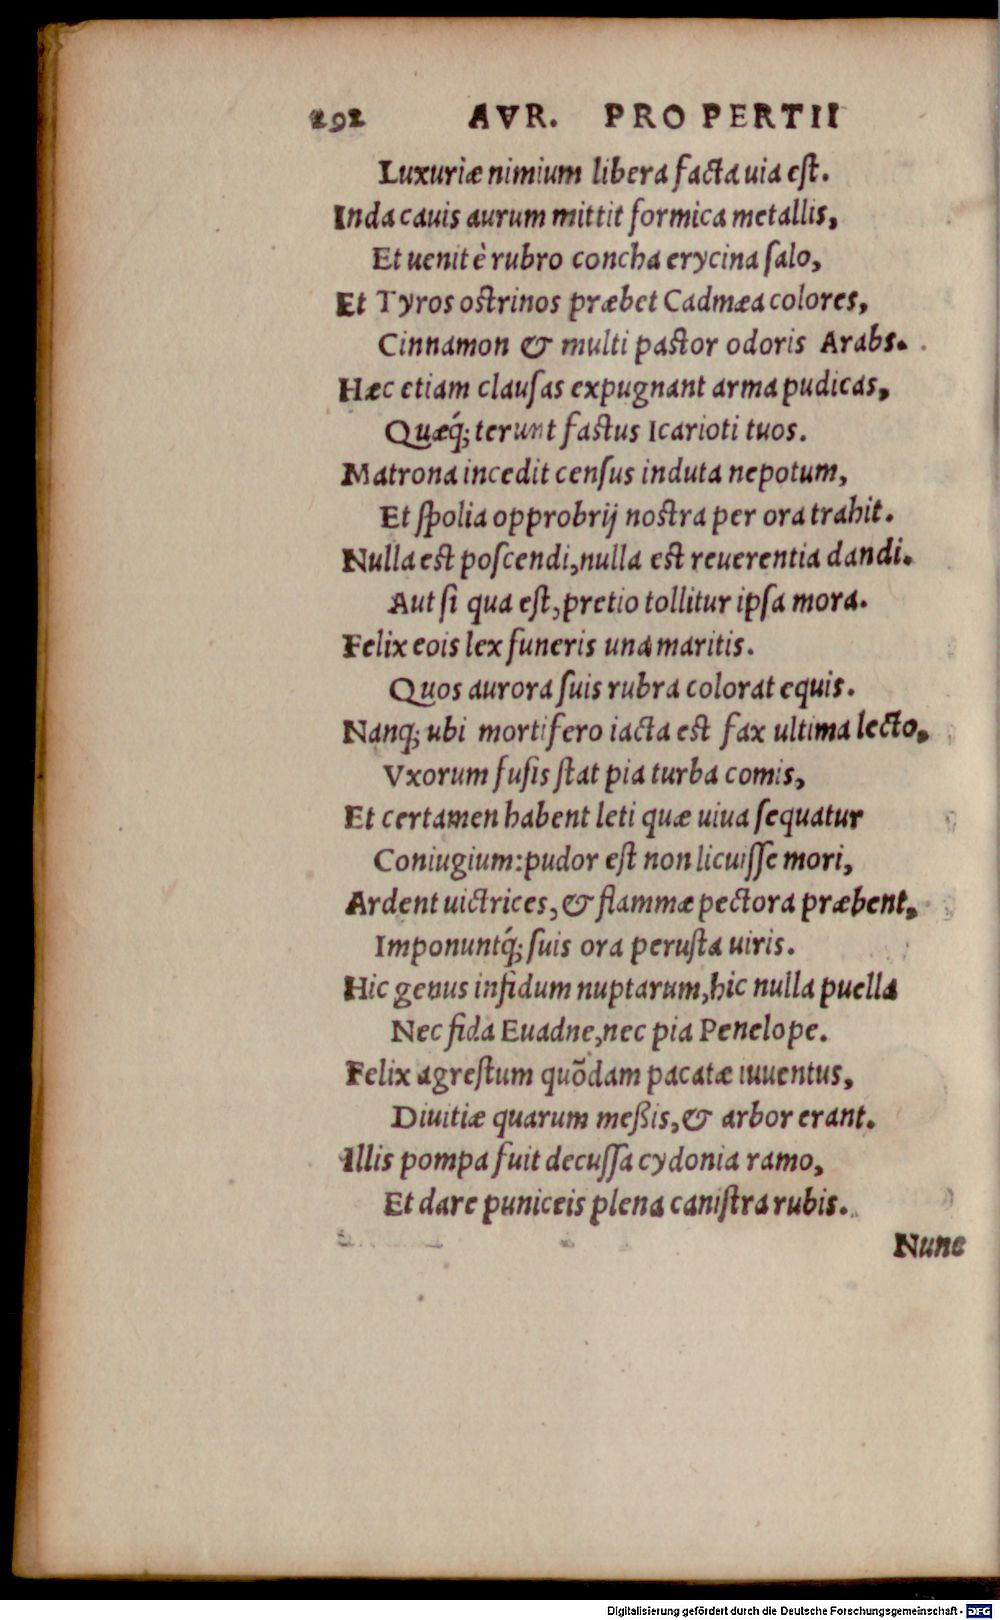 292 AVR. PROPERTII
Luxuriæ nimium libera facta uia est.
Inda cauis aurum mittit formica metallis,
Et uenit è rubro concha erycina salo,
Et Tyros ostrinos præbet Cadmæa colores,
Cinnamon & multi pastor odoris Arabs.
Hæc etiam clausas expugnant arma pudicas,
Quæq́; terunt fastus Icarioti tuos.
Matrona incedit census induta nepotum,
Et spolia opprobrij nostra per ora trahit.
Nulla est poscendi, nulla est reuerentia dandi.
Aut si qua est, pretio tollitur ipsa mora.
Felix eois lex funeris una maritis.
Quos aurora suis rubra colorat equis.
Nanq; ubi mortifero iacta est fax ultima lecto,
Vxorum fusis stat pia turba comis,
Et certamen habent leti quæ uiua sequatur
Coniugium: pudor est non licuisse mori,
Ardent uictrices, & flammæ pectora præbent,
Imponuntq́; suis ora perusta uiris.
Hic genus infidum nuptarum, hic nulla puella
Nec fida Euadne, nec pia Penelope.
Felix agrestum quōdam pacatæ iuuentus,
Diuitiæ quarum meßis, & arbor erant.
Illis pompa fuit decussa cydonia ramo,
Et dare puniceis plena canistra rubis.
Nunc
Digitalisierung gefördert durch die Deutsche Forschungsgemeinschaft - DFG